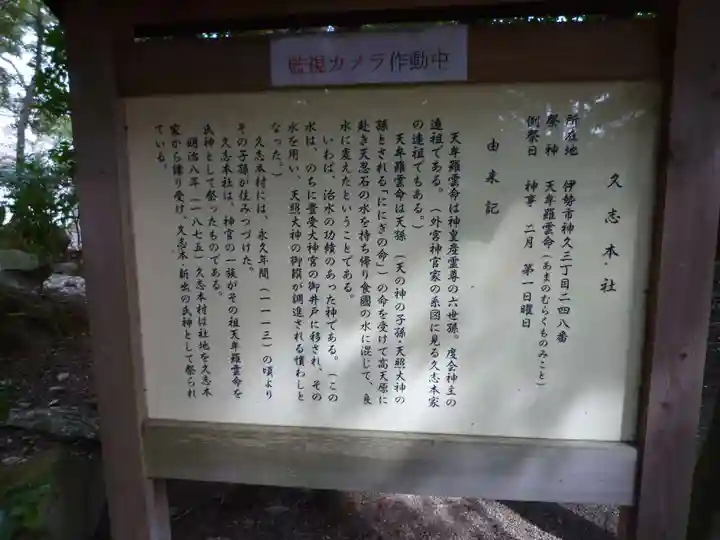 監視カメラ作動中
久志本社
所在地　伊勢市神久三丁目二四八番
祭神　天牟羅雲命（あまのむらくものみこと）
例祭日　神事　二月　第一日曜日
由来記
天牟羅雲命は神皇産霊尊の六世孫。度会神主の
遠祖である。（外宮神官家の系図に見る久志本家
の遠祖でもある。）
天牟羅雲命は天孫（天の神の子孫・天照大神の
孫とされる「ににぎの命」）の命を受けて高天原に
赴き天忍石の水を持ち帰り食國の水に混じて、良
水に変えたということである。
いわば、治水の功績のあった神である。（この
水は、のちに豊受大神宮の御井戸に移され、その
水を用い、天照大神の御饌が調進される慣わしと
なった。）
久志本村には、永久年間（一一一三）の頃より
その子孫が住みつづけた。
久志本社は、神宮の一族がその祖天牟羅雲命を
氏神として祭ったものである。
明治八年（一八七五）久志本村は社地を久志本
家から譲り受け、久志本・新出の氏神として祭られ
ている。